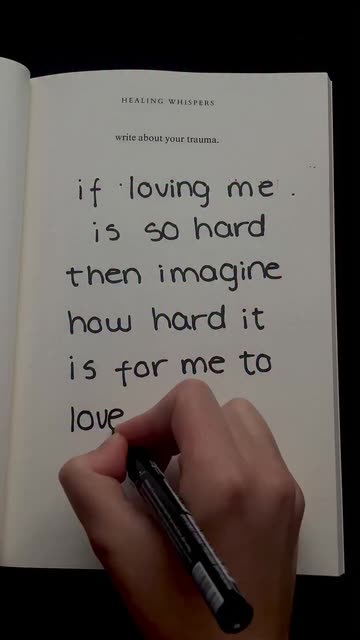 HEALING WHISPERS
write about your trauma.
if loving me.
is so hard
then imagine
how hard it
is for me to
love